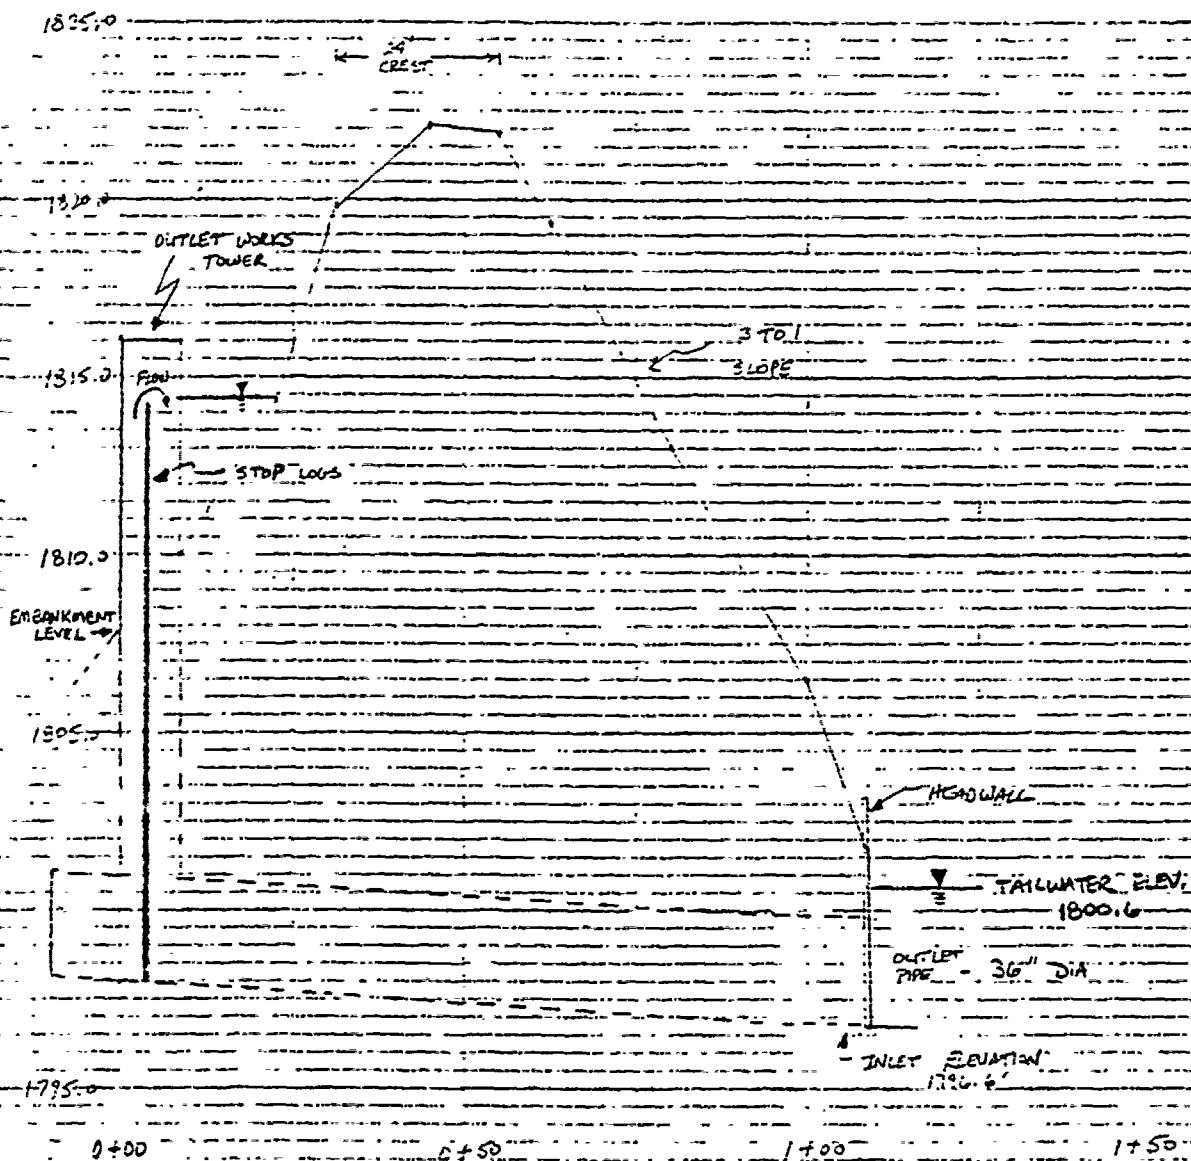 1825.0
24
CREST
1820.0
OUTLET WORKS
TOWER
3 TO 1
SLOPE
1815.0
FLOW
STOP LOGS
1810.0
EMBANKMENT
LEVEL
1805.0
HEADWALL
TAILWATER ELEV.
1800.6
OUTLET
PIPE - 36" DIA
INLET ELEVATION
1796.6'
1795.0
0+00
0+50
1+00
1+50